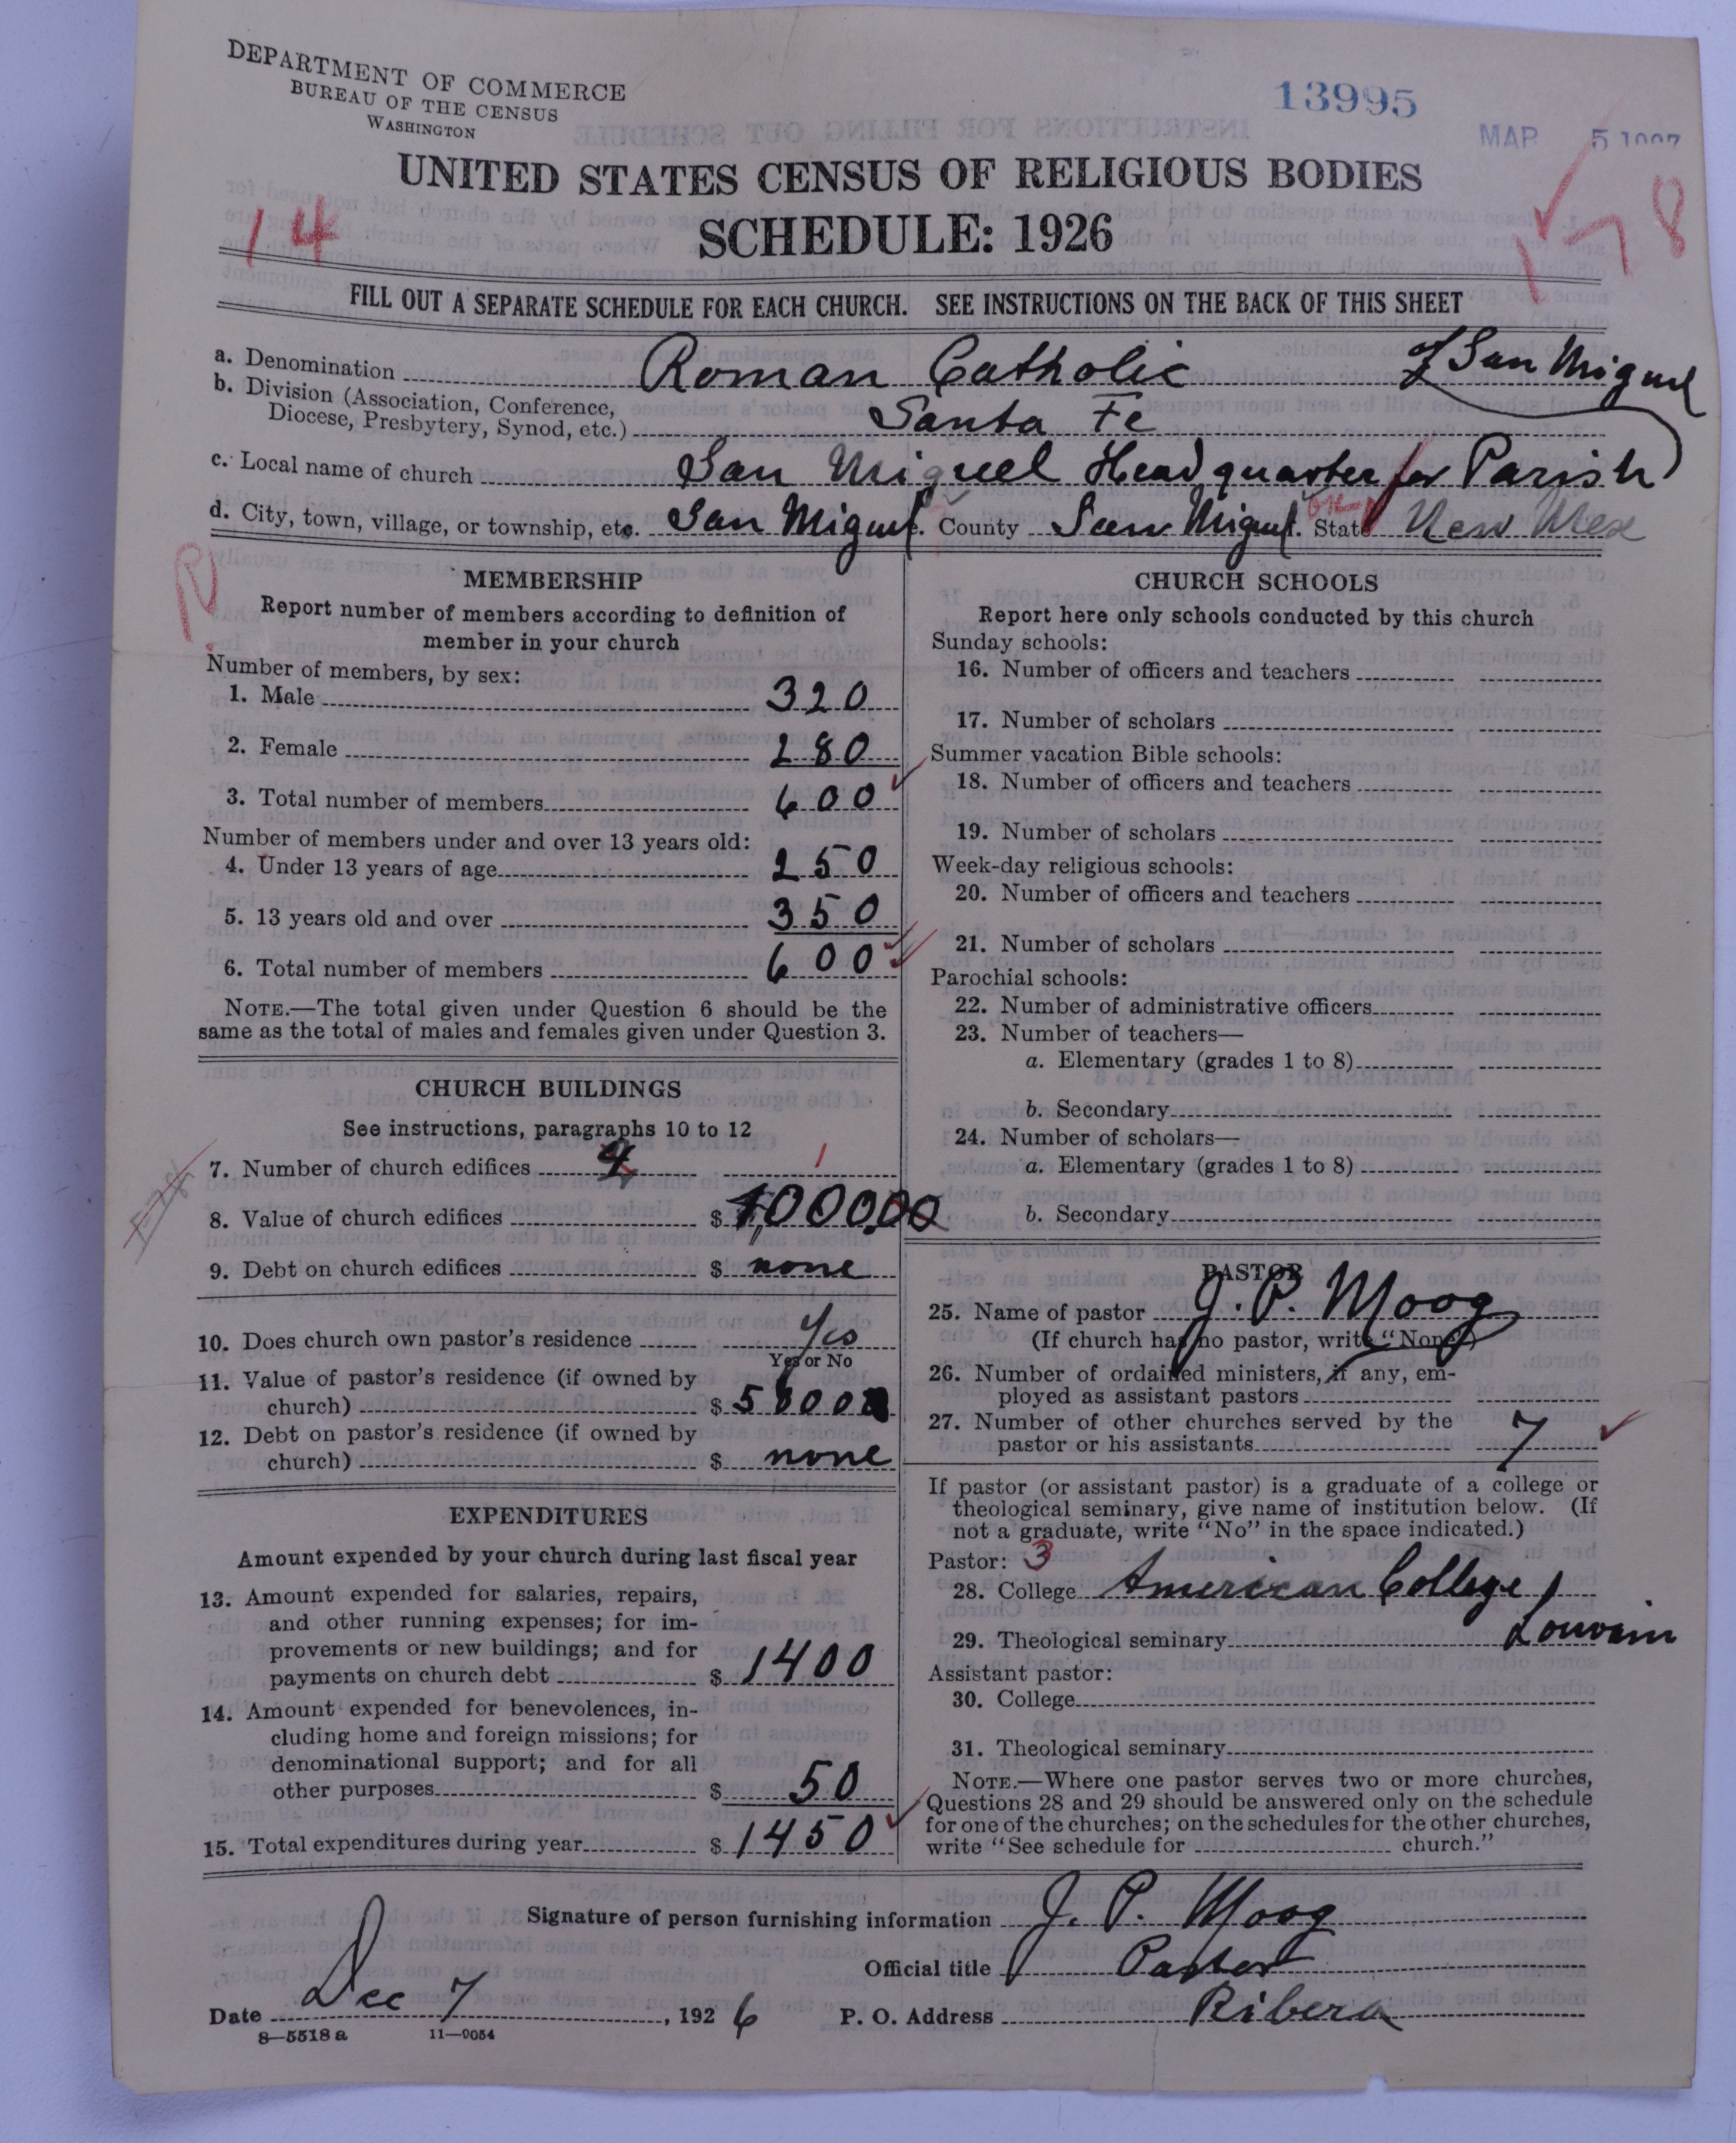 DEPARTMENT OF COMMERCE
BUREAU OF THE CENSUS
WASHINGTON
13995
MAR 5
UNITED STATES CENSUS OF RELIGIOUS BODIES
SCHEDULE: 1926
14
178
FILL OUT A SEPARATE SCHEDULE FOR EACH CHURCH. SEE INSTRUCTIONS ON THE BACK OF THIS SHEET
a. Denomination Roman Catholic of San Miguel
b. Division (Association, Conference,
Diocese, Presbytery, Synod, etc.) Santa Fe
c. Local name of church San Miguel Headquarter for Parish
d. City, town, village, or township, etc. San Miguel. County San Miguel. State New Mex
MEMBERSHIP
Report number of members according to definition of
member in your church
Number of members, by sex:
1. Male 320
2. Female 280
3. Total number of members 600
Number of members under and over 13 years old:
4. Under 13 years of age 250
5. 13 years old and over 350
6. Total number of members 600
NOTE.—The total given under Question 6 should be the
same as the total of males and females given under Question 3.
CHURCH BUILDINGS
See instructions, paragraphs 10 to 12
7. Number of church edifices 1
8. Value of church edifices $ 10000.00
9. Debt on church edifices $ none
10. Does church own pastor's residence Yes
Yes or No
11. Value of pastor's residence (if owned by
church) $
12. Debt on pastor's residence (if owned by
church) $ none
EXPENDITURES
Amount expended by your church during last fiscal year
13. Amount expended for salaries, repairs,
and other running expenses; for im-
provements or new buildings; and for
payments on church debt $ 1400
14. Amount expended for benevolences, in-
cluding home and foreign missions; for
denominational support; and for all
other purposes $ 50
15. Total expenditures during year $ 1450
CHURCH SCHOOLS
Report here only schools conducted by this church
Sunday schools:
16. Number of officers and teachers
17. Number of scholars
Summer vacation Bible schools:
18. Number of officers and teachers
19. Number of scholars
Week-day religious schools:
20. Number of officers and teachers
21. Number of scholars
Parochial schools:
22. Number of administrative officers
23. Number of teachers—
a. Elementary (grades 1 to 8)
b. Secondary
24. Number of scholars—
a. Elementary (grades 1 to 8)
b. Secondary
PASTOR
25. Name of pastor J. P. Moog
(If church has no pastor, write "None")
26. Number of ordained ministers, if any, em-
ployed as assistant pastors
27. Number of other churches served by the
pastor or his assistants 7
If pastor (or assistant pastor) is a graduate of a college or
theological seminary, give name of institution below. (If
not a graduate, write "No" in the space indicated.)
Pastor: 3
28. College American College,
29. Theological seminary Louvain
Assistant pastor:
30. College
31. Theological seminary
NOTE.—Where one pastor serves two or more churches,
Questions 28 and 29 should be answered only on the schedule
for one of the churches; on the schedules for the other churches,
write "See schedule for church."
Signature of person furnishing information J. P. Moog
Official title Pastor
Date Dec 7, 1926 P. O. Address Ribera
8—5518 a 11—9054